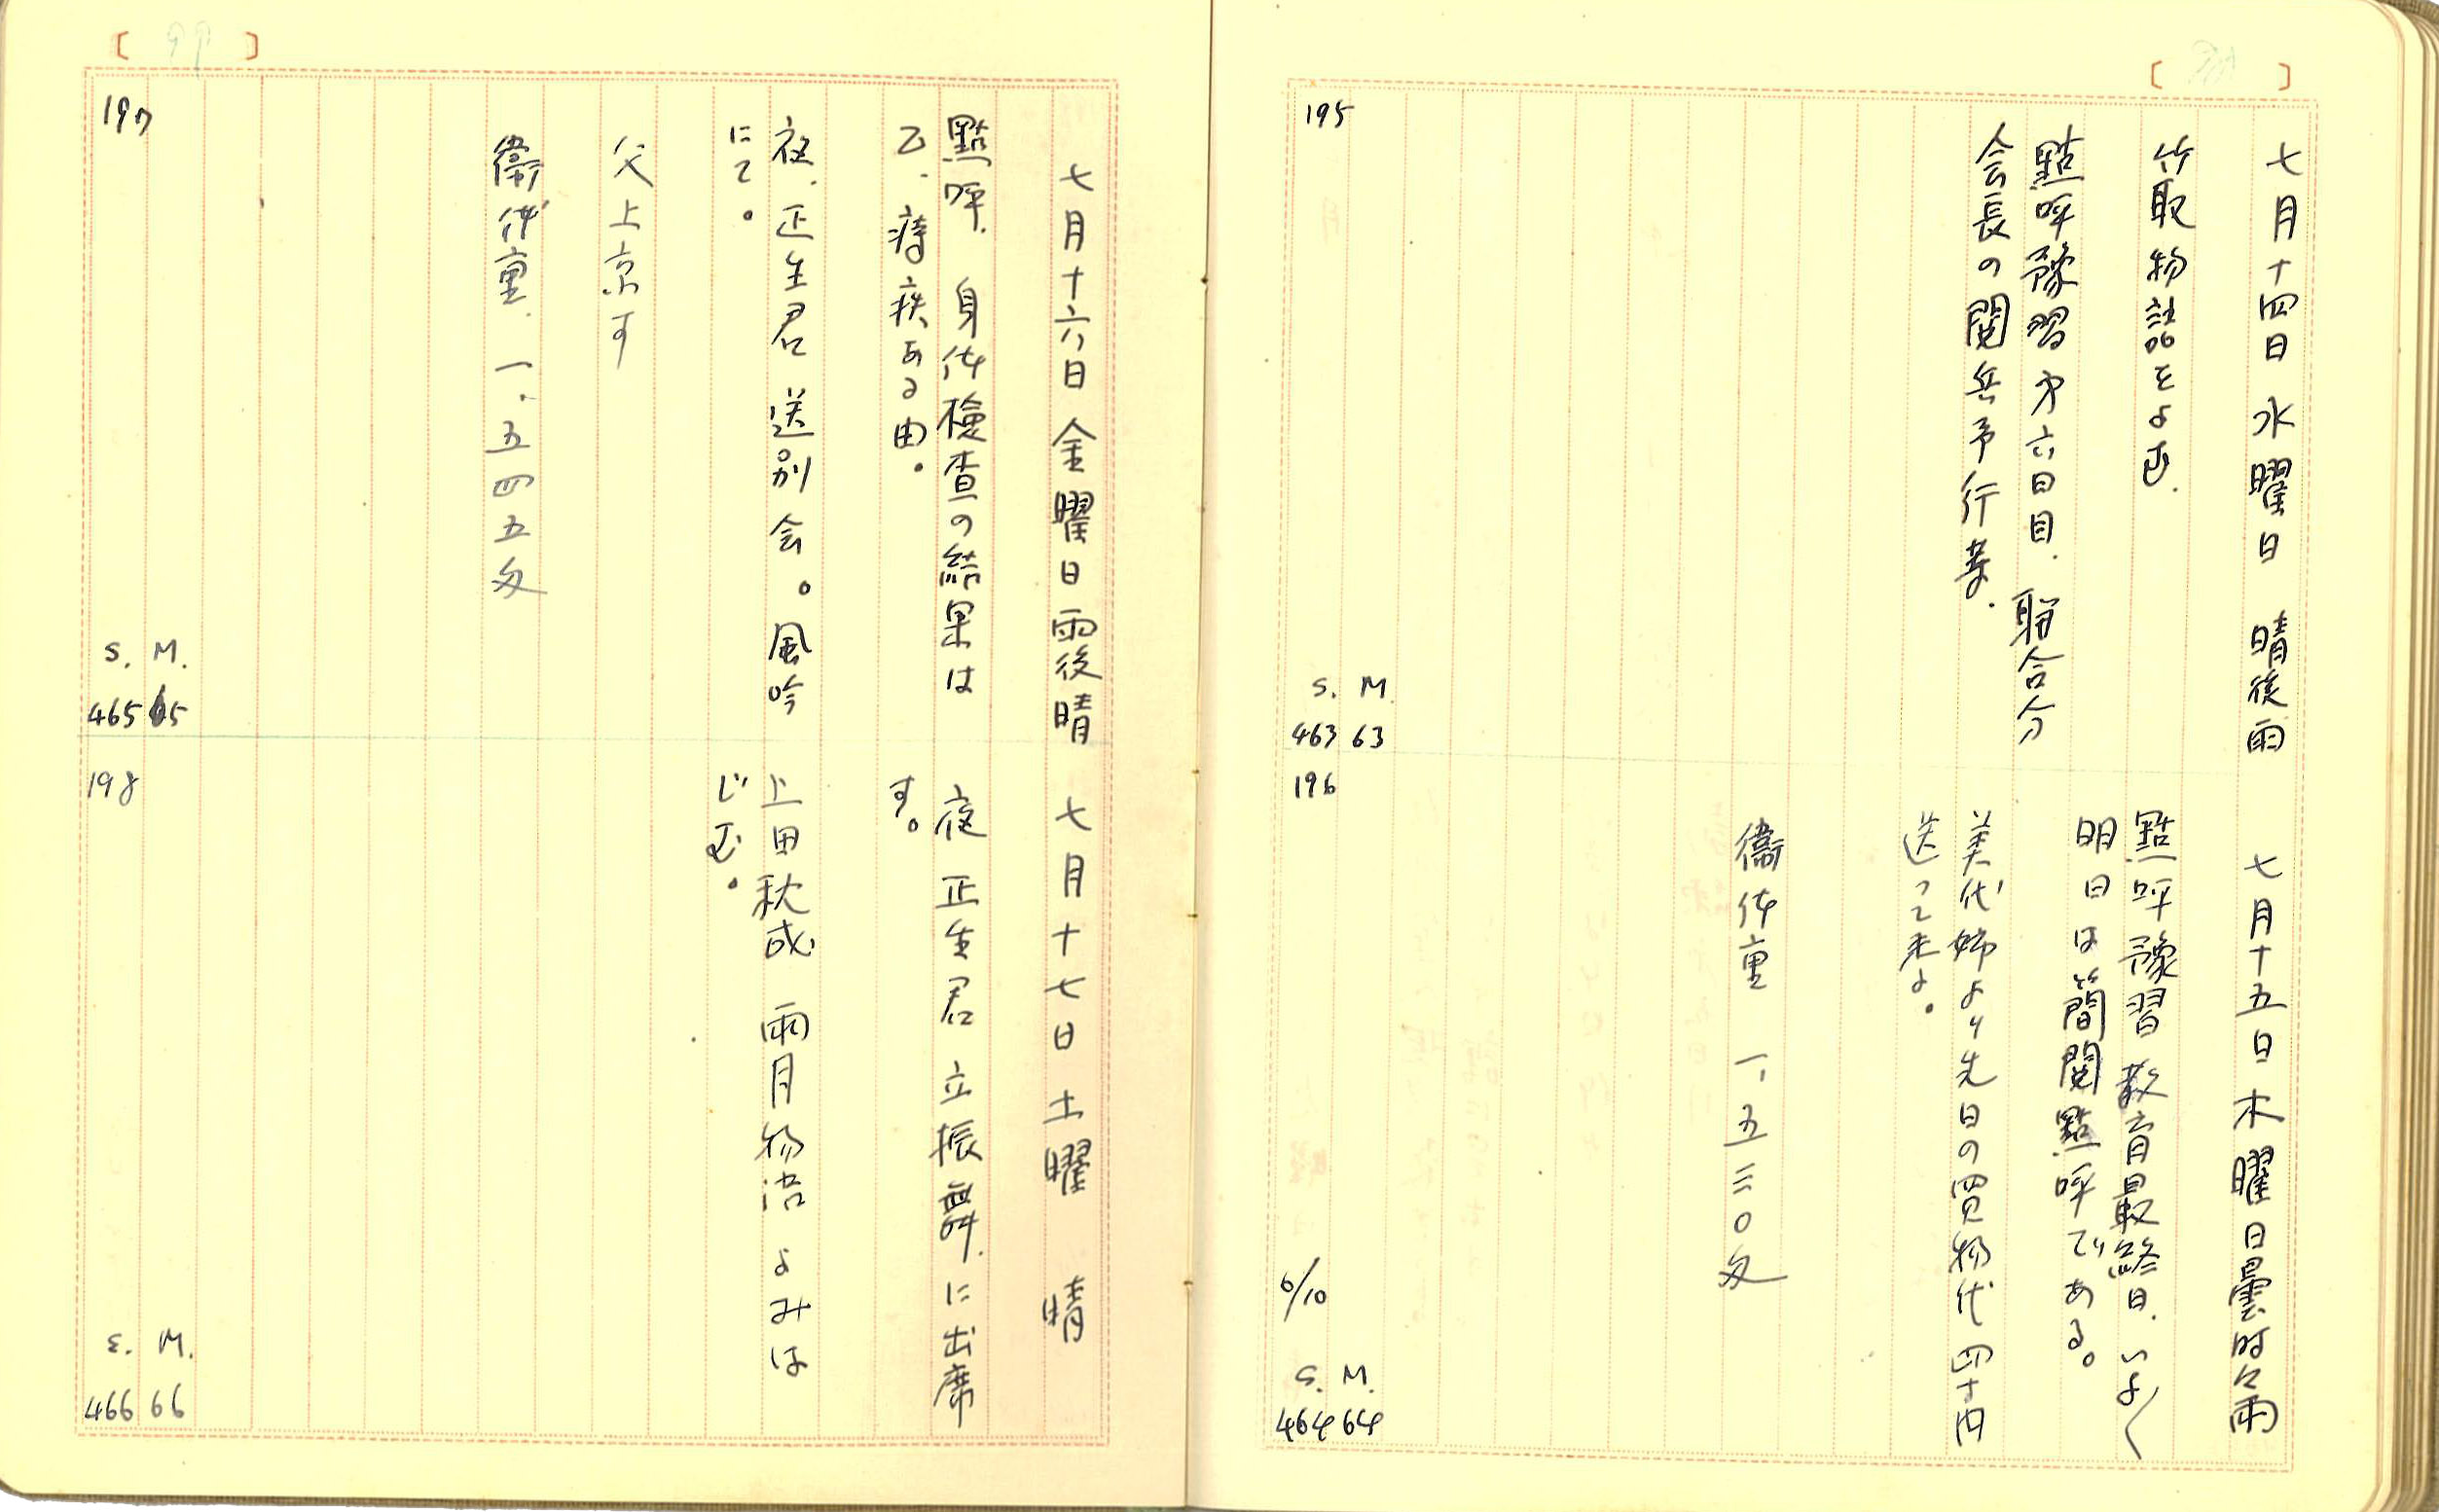 七月十四日 水曜日 晴後雨
竹取物語をよむ.
點呼豫習第六日目. 聯合分
会長の閲兵予行等.
195
S. M
463 63
七月十五日 木曜日曇時々雨
點呼豫習教育最終日. いよ〱
明日は簡閲點呼である。
美代姉より先日の買物代四十円
送って来よ。
衞体重 一、五三〇匁
196
6/10
S. M.
464 64
七月十六日 金曜日 雨後晴
點呼. 身体檢査の結果は
乙. 痔疾ある由。
夜. 正生君送別会。風吟
にて。
父上京す
衞体重. 一.五四五匁
197
S. M.
465 65
七月十七日 土曜 晴
夜 正生君 立振舞. に出席
す。
上田秋成 雨月物語 よみは
じむ。
198
S. M.
466 66